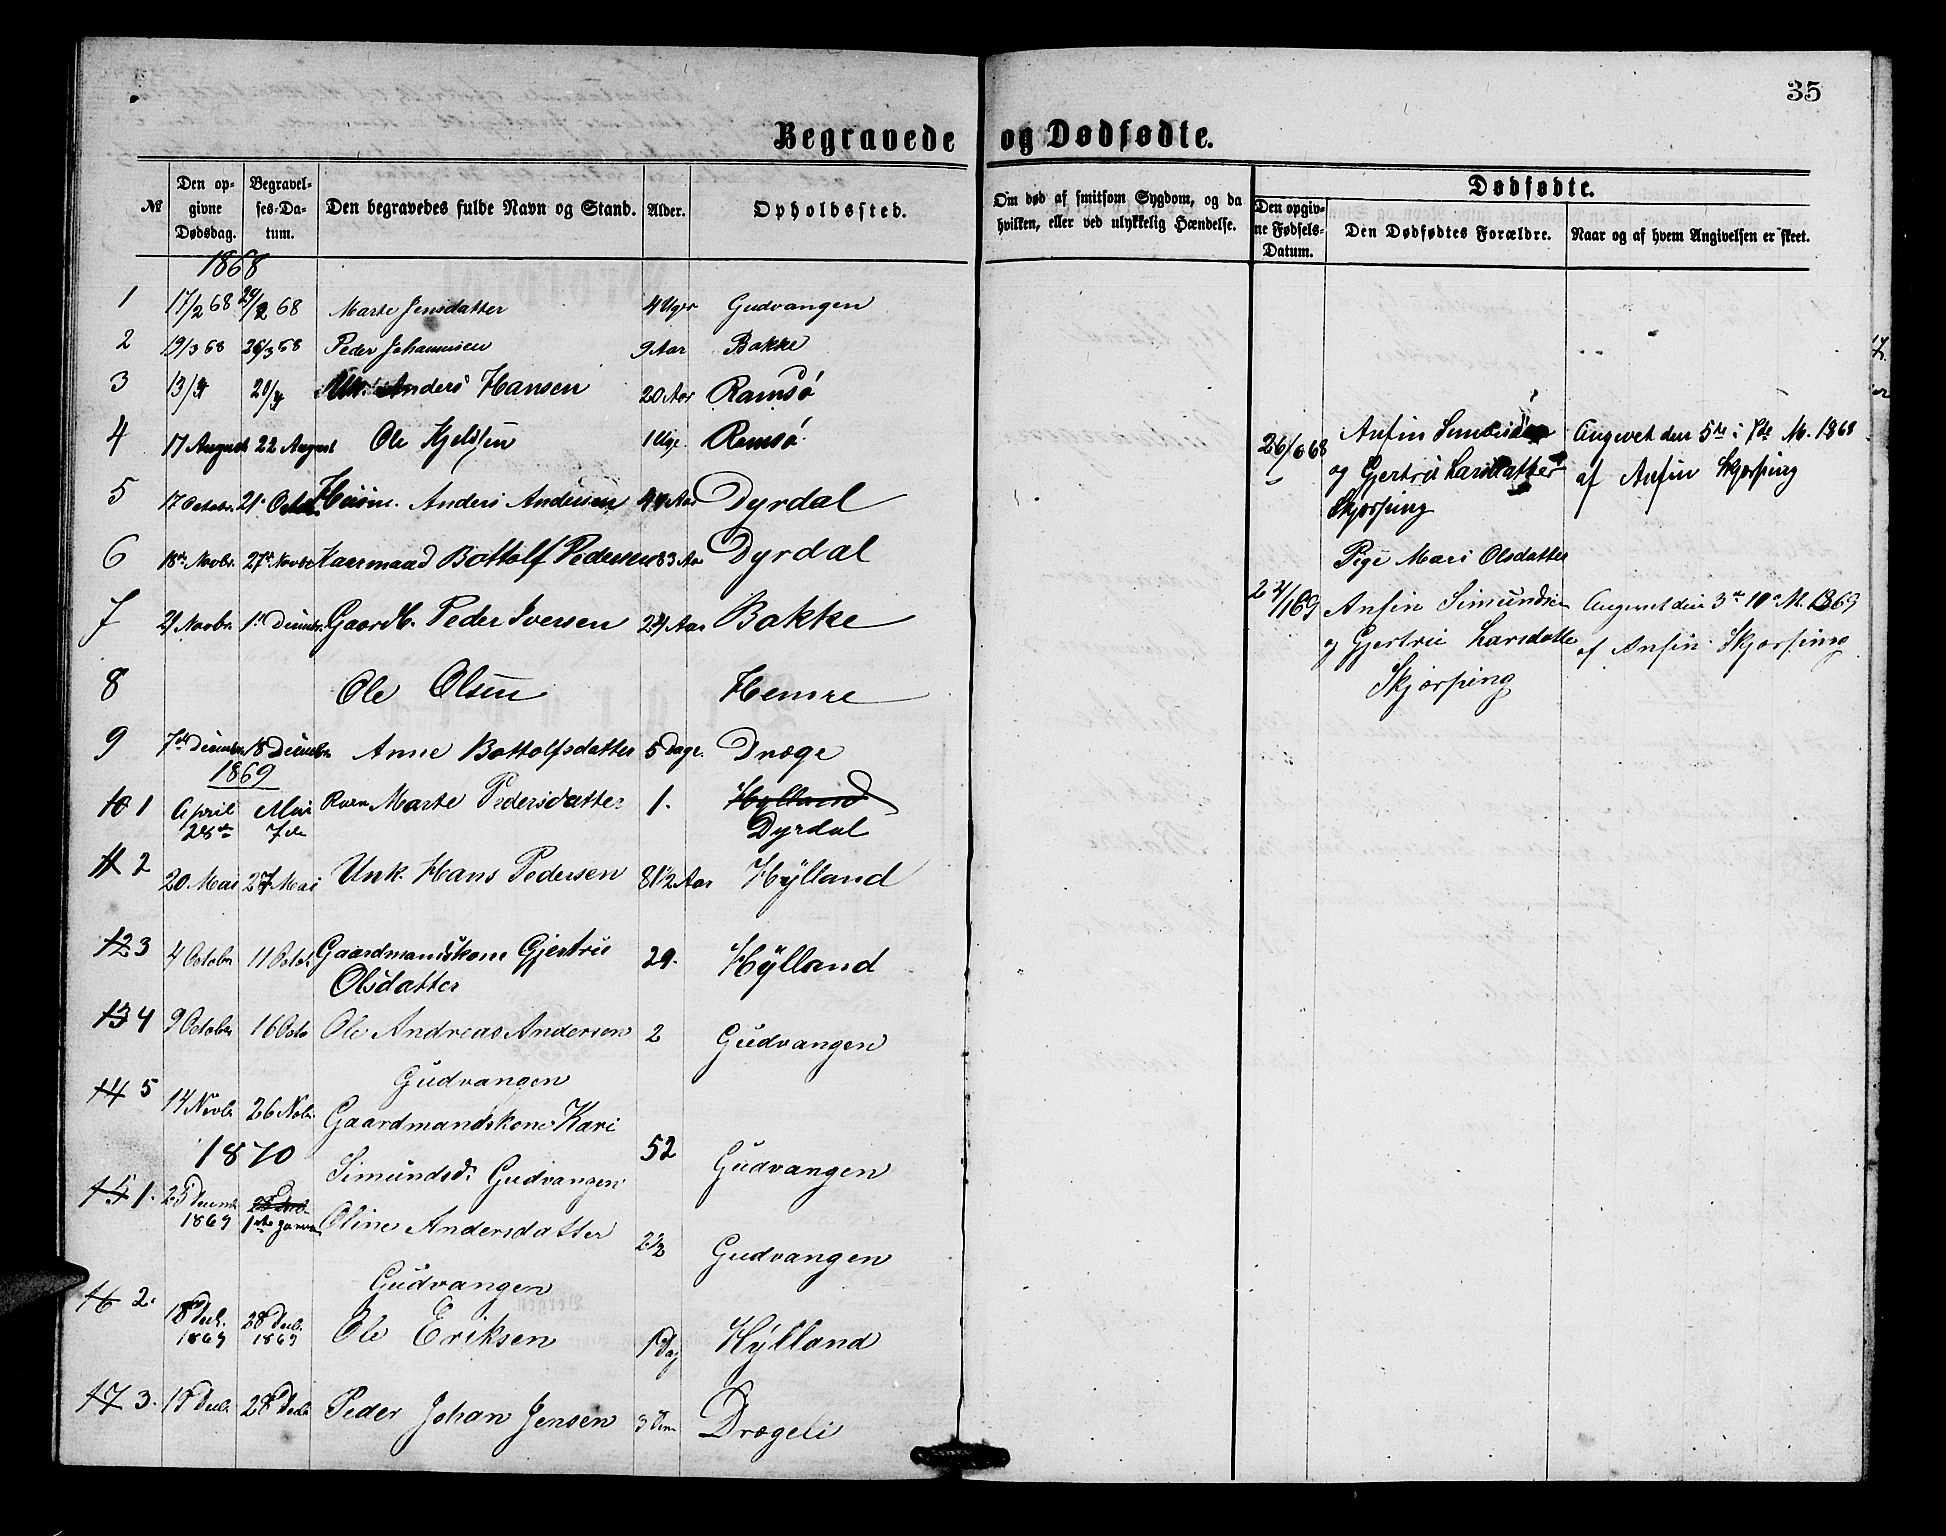 35
Begravede og Dødfødte.
№ Den opgivne Dødsdag. Begravelses-Datum. Den begravedes fulde Navn og Stand. Alder. Opholdssted. Om død af smitsom Sygdom, og da hvilken, eller ved ulykkelig Hændelse. Dødfødte.
Den opgivne Fødsels-Datum. Den Dødfødtes Forældre. Naar og af hvem Angivelsen er skeet.
1868
1 17/2 68 29/2 68 Marte Jensdatter 4 Uger Gudvangen
2 19/3 68 26/3 68 Peder Johannesen 9 Aar Bakke
3 13/4 20/4 Unk. Anders Hansen 20 Aar Ramsø
4 17 August 22 August Ole Kjeldsen 1 Uge Ramsø
5 17 Octobr. 21 Octob. Anders Andersen 44 Aar Dyrdal
6 18de Novbr. 27de Novbr. Kaarmaad Bottolf Pedersen 83 Aar Dyrdal
7 21 Novbr. 1ste Decembr. Gaardb. Peder Iversen 24 Aar Bakke
8 Ole Olsen Hemre
9 7de Decembr. 18 Decembr. Anne Bottolfsdatter 5 Dage. Dræge
1869
10 1 April 28de Mai 7de Barn Marte Pedersdatter 1. Hylland
Dyrdal
11 2 20 Mai 27 Mai Unk. Hans Pedersen 8 1/2 Aar Hylland
12 3 4 Octobr 11 Octob. Gaardmandskone Gjertrie
Olsdatter 29. Hylland
13 4 9 Octobr. 16 Octo Ole Andreas Andersen 2 Gudvangen
Gudvangen
14 5 14 Novb. 26 Nob. Gaardmandskone Kari
Simundsd. Gudvangen 52 Gudvangen
1870
15 1. 25 Decemb. 1869 1ste Januar Oline Andersdatter 2 1/2 Gudvangen
Gudvangen
16 2. 18 Decb. 1869 28 Decb. 1869 Ole Eriksen 1 Dag Hylland
17 3. 18 Decb. 28 Decb. Peder Johan Jensen 3 Drægeli
26/6 68 Anfin Simundsen
og Gjertrie Larsdatter
Skjerping
Angivet den 5te i 7de M. 1868
af Anfin Skjerping
Pige Mari Olsdatter
24/1 69 Anfin Simundsen
og Gjertrie Larsdatte
Skjerping
Angivet den 3de 10 M. 1869
af Anfin Skjerping